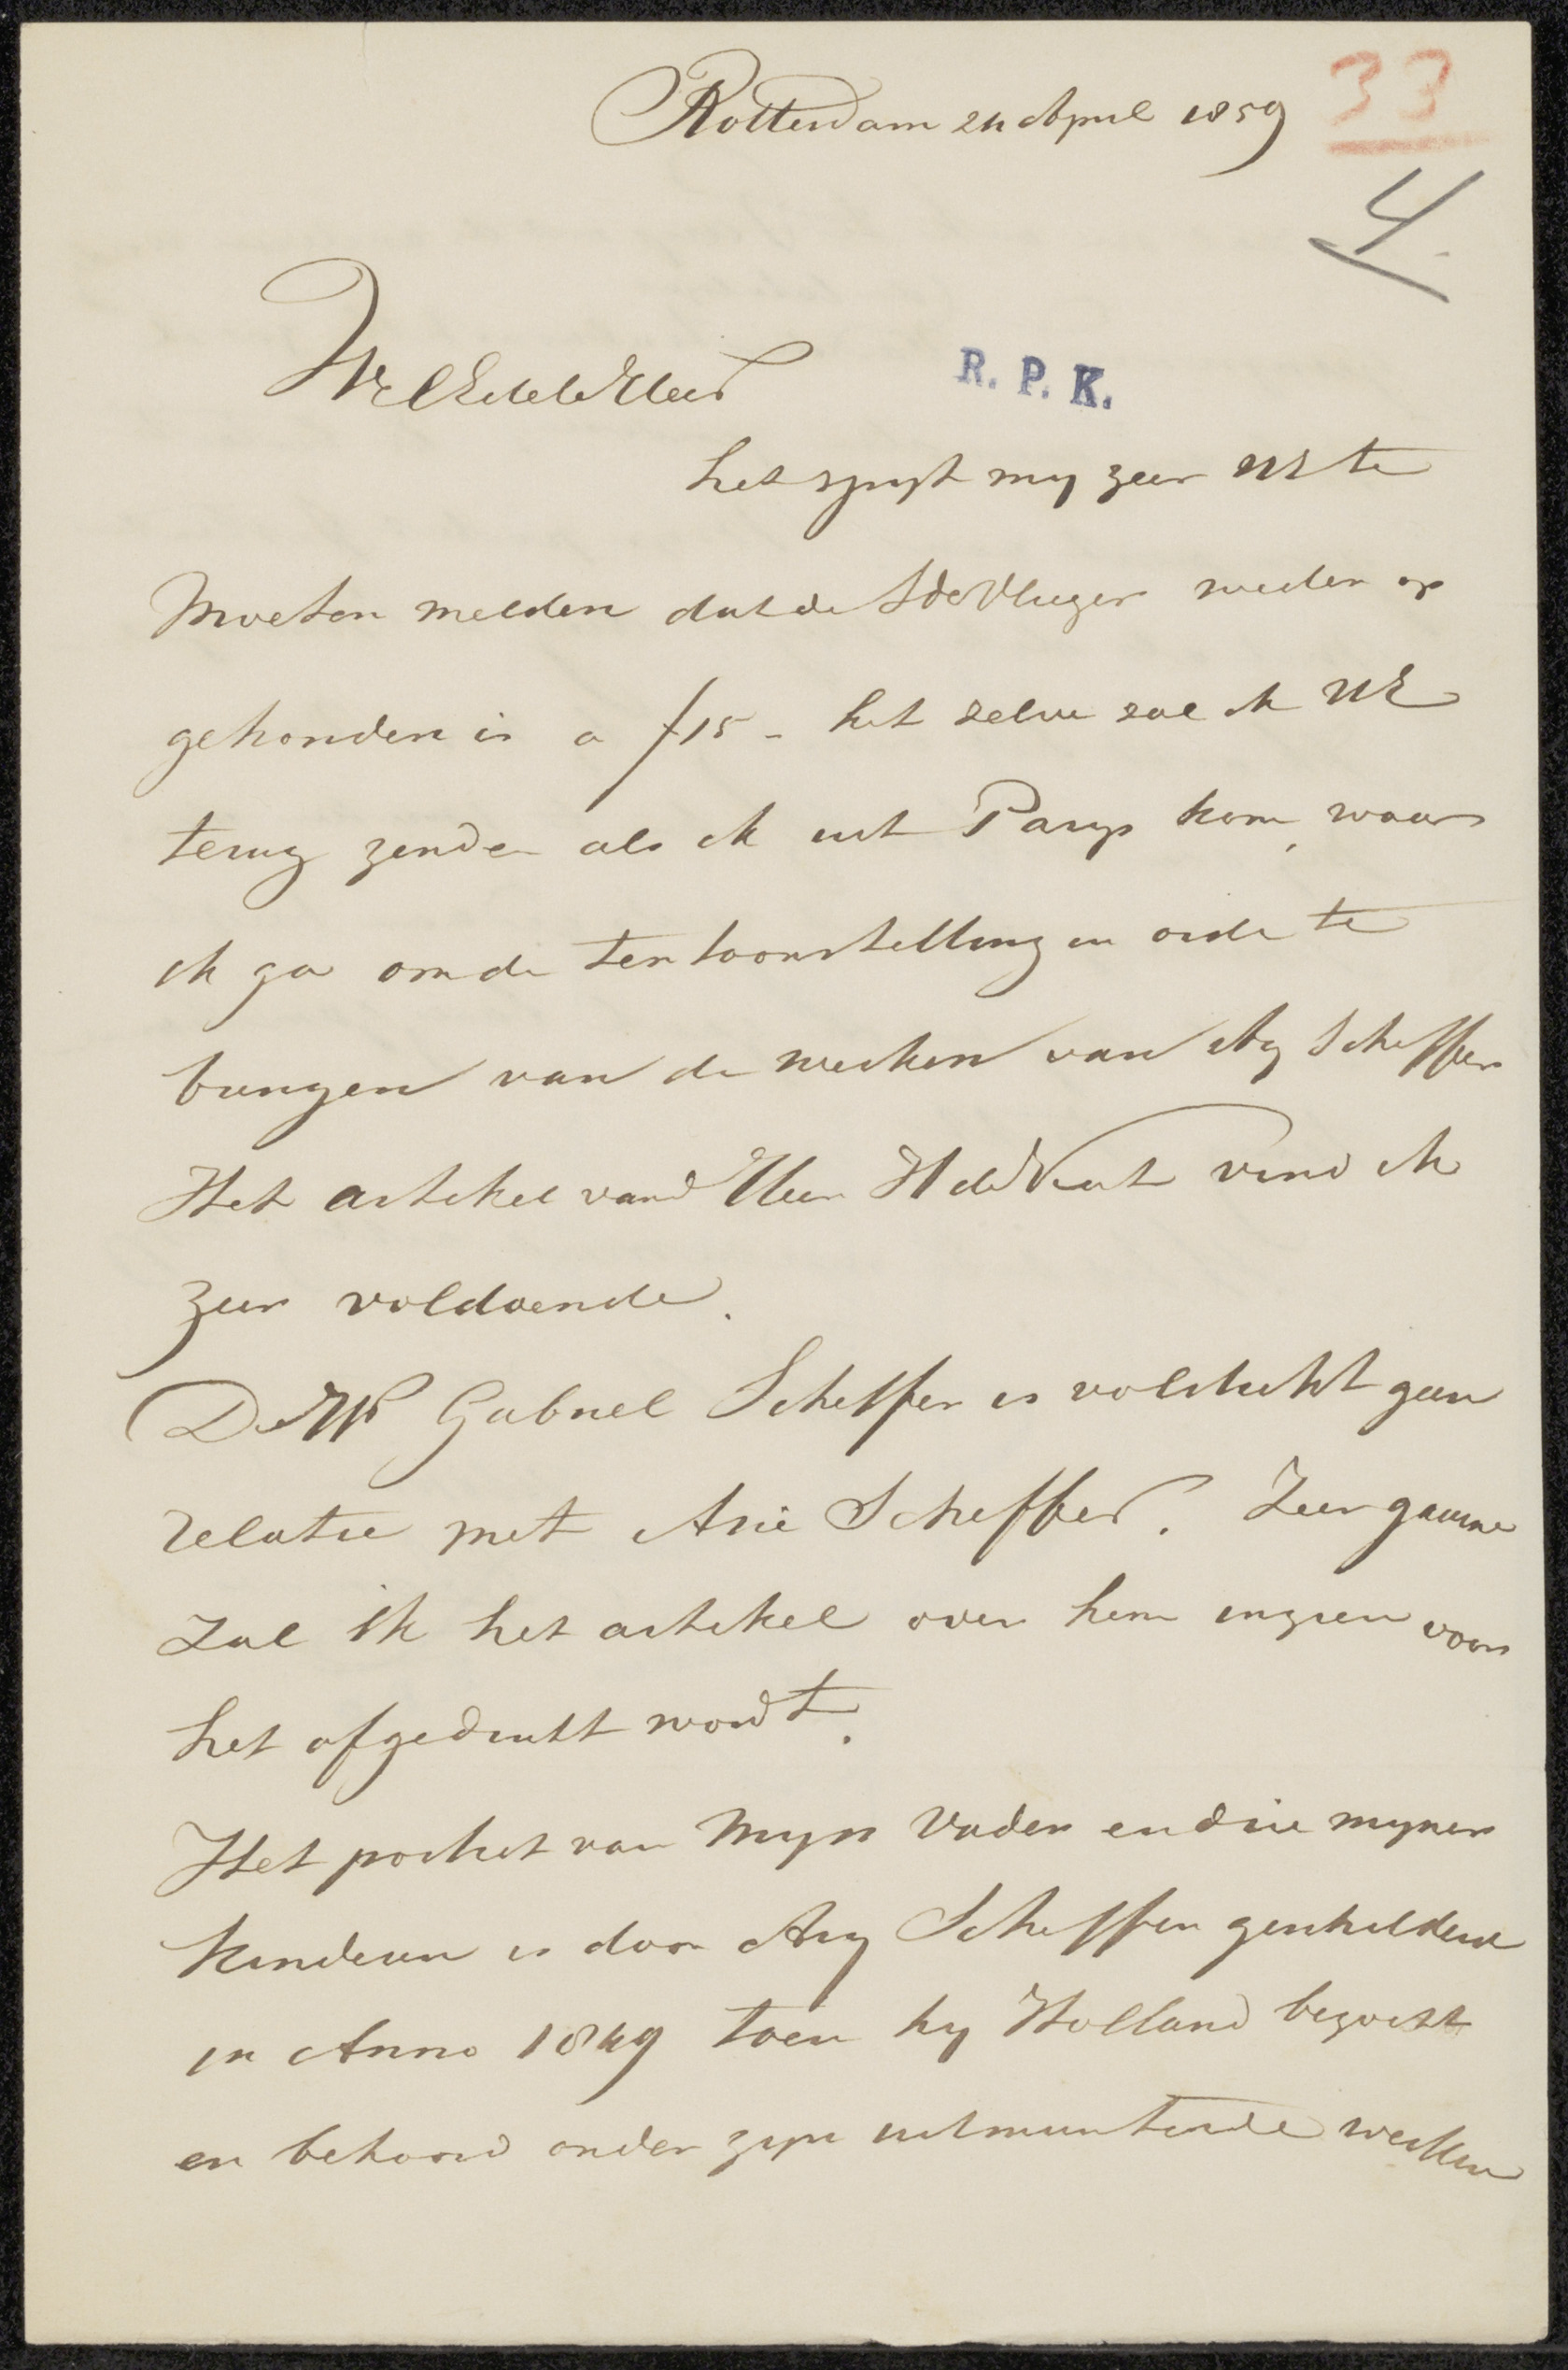 Rotterdam 24 April 1859
33
4.
WelEdele Heer
R. P. K.
het spyt my zeer UE te
Moeten melden dat de S de Vlieger weder op
gehouden is a f15 - het zelve zal ik UE
terug zenden als ik uit Parys kom, waar
ik ga om de tentoonstelling in orde te
brengen van de werken van Ary Scheffer
Het artikel van d Heer H de Kat vind ik
zeer voldoende.
De Gabriel Scheffer is volstrekt geen
relatie met Arie Scheffer. Zeer gaarne
Zal ik het artikel over hem inzien voor
het afgedrukt wordt.
Het portret van Myn Vader en drie myner
Kinderen is door Ary Scheffer geschilderd
in Anno 1849 toen hy Holland bezocht
en behoord onder zyn uitmuntende werken